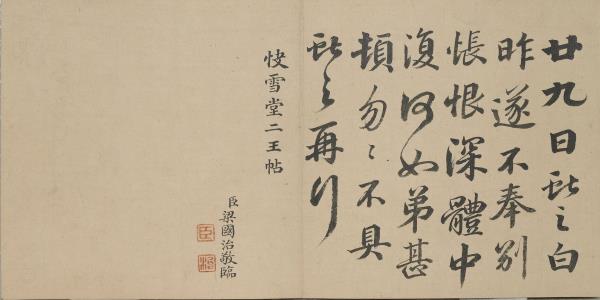 廿九日獻之白
昨遂不奉別
悵恨深體中
復何如弟甚
頓勿〻不具
獻之再拜
快雪堂二王帖
臣梁國治敬臨
臣